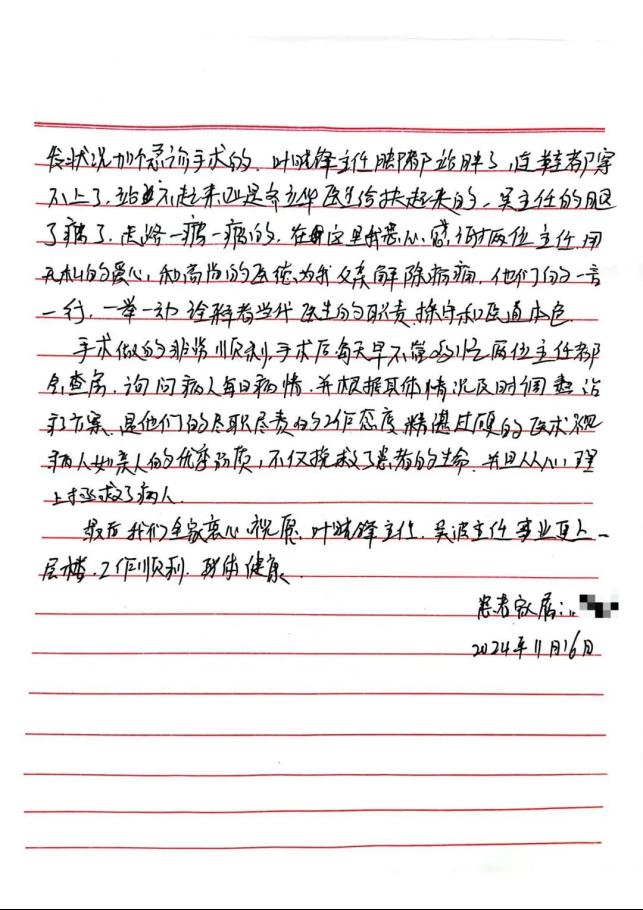 发状况加个急诊手术的。叶晓锋主任脚都站肿了,连鞋都穿
不上了,站立不起来了还是医生给扶起来的。吴主任的腿
了痛了,走路一瘸一瘸的。在这里我衷心感谢两位主任,用
无私的爱心,和高尚的医德为我父亲解除病痛,他们的一言
一行,一举一动诠释着当代医生的职责、操守和医道本色
手术做的非常顺利,手术后每天早不管多忙两位主任都
会查房,询问病人每日病情,并根据具体情况及时调整治
疗方案,是他们的尽职尽责的工作态度,精湛过硬的医术,视
病人如亲人的优秀品质,不仅挽救了患者的生命,并且从心理
上拯救了病人。
最后我们全家衷心祝愿,叶晓锋主任,吴波主任事业更上一
层楼,工作顺利,身体健康。
患者家属:
2024年11月16日